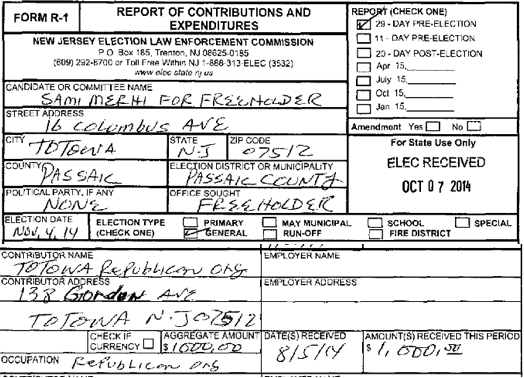 FORM R-1
REPORT OF CONTRIBUTIONS AND EXPENDITURES
NEW JERSEY ELECTION LAW ENFORCEMENT COMMISSION
P.O. Box 185, Trenton, NJ 08625-0185
(609) 292-8700 or Toll Free Within NJ 1-888-313-ELEC (3532)
www.elec.state.nj.us
REPORT (CHECK ONE)
29 - DAY PRE-ELECTION
11 - DAY PRE-ELECTION
20 - DAY POST-ELECTION
Apr 15,
July 15,
Oct 15,
Jan 15,
Amendment Yes No
CANDIDATE OR COMMITTEE NAME
SAMI MERHI FOR FREEHOLDER
STREET ADDRESS
16 columbus AVE
CITY STATE ZIP CODE
TOTOWA N.J 07512
COUNTY ELECTION DISTRICT OR MUNICIPALITY
PASSAIC PASSAIC COUNTY
POLITICAL PARTY, IF ANY OFFICE SOUGHT
NONE FREEHOLDER
For State Use Only
ELEC RECEIVED
OCT 07 2014
ELECTION DATE
Nov, 4, 14
ELECTION TYPE (CHECK ONE)
PRIMARY MAY MUNICIPAL SCHOOL SPECIAL
GENERAL RUN-OFF FIRE DISTRICT
CONTRIBUTOR NAME EMPLOYER NAME
TOTOWA Republican Org
CONTRIBUTOR ADDRESS EMPLOYER ADDRESS
138 Gordon AVE
TOTOWA N.J 07512
CHECK IF CURRENCY AGGREGATE AMOUNT DATE(S) RECEIVED AMOUNT(S) RECEIVED THIS PERIOD
$ 1000,00 8/5/14 $ 1,000,00
OCCUPATION Republican Org